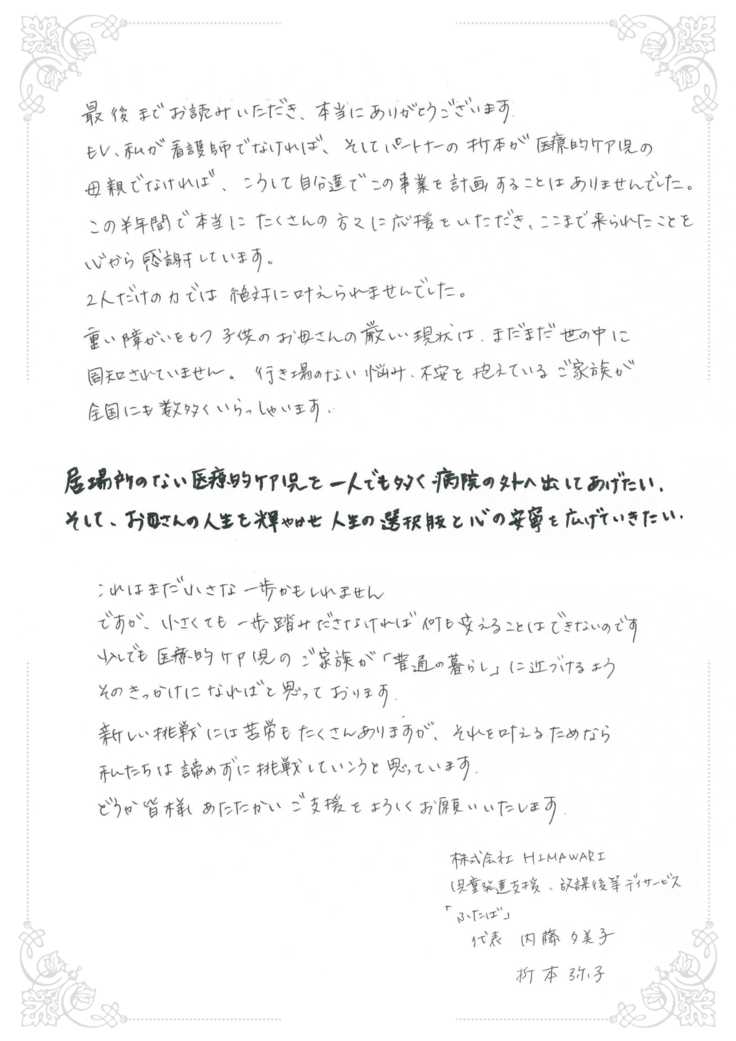 最後までお読みいただき、本当にありがとうございます.
もし、私が看護師でなければ、そしてパートナーの折本が医療的ケア児の
母親でなければ、こうして自分達でこの事業を計画することはありませんでした。
この半年間で本当にたくさんの方々に応援をいただき、ここまで来られたことを
心から感謝しています。
2人だけの力では絶対に叶えられませんでした。
重い障がいをもつ子供のお母さんの厳しい現状は、まだまだ世の中に
周知されていません。行き場のない悩み、不安を抱えているご家族が
全国にも数多くいらっしゃいます.
居場所のない医療的ケア児を一人でも多く病院の外へ出してあげたい.
そして、お母さんの人生を輝やかせ人生の選択肢と心の安寧を広げていきたい.
これはまだ小さな一歩かもしれません
ですが、小さくても一歩踏みださなければ何も変えることはできないのです
少しでも医療的ケア児のご家族が「普通の暮らし」に近づけるよう
そのきっかけになればと思っております.
新しい挑戦には苦労もたくさんありますが、それを叶えるためなら
私たちは諦めずに挑戦していこうと思っています.
どうか皆様、あたたかいご支援をよろしくお願いいたします.
株式会社 HIMAWARI
児童発達支援、放課後等デイサービス
「ふたば」
代表 内藤夕美子
折本弥子